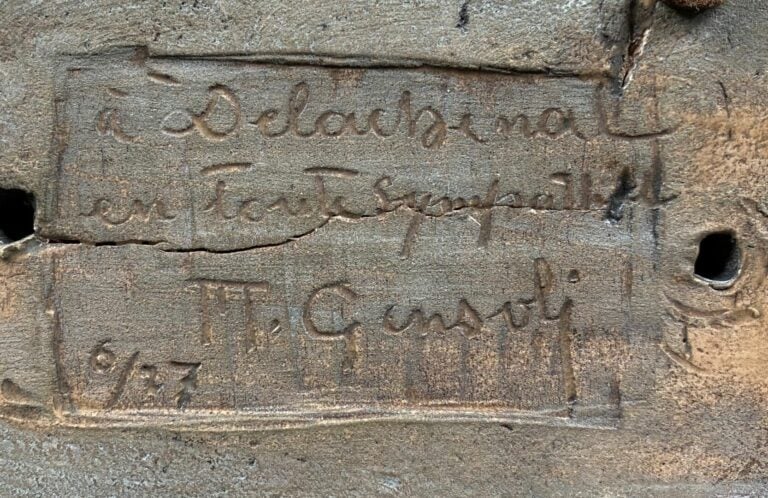 à Delachenal
en toute sympathie
M. Gensoly
6/27